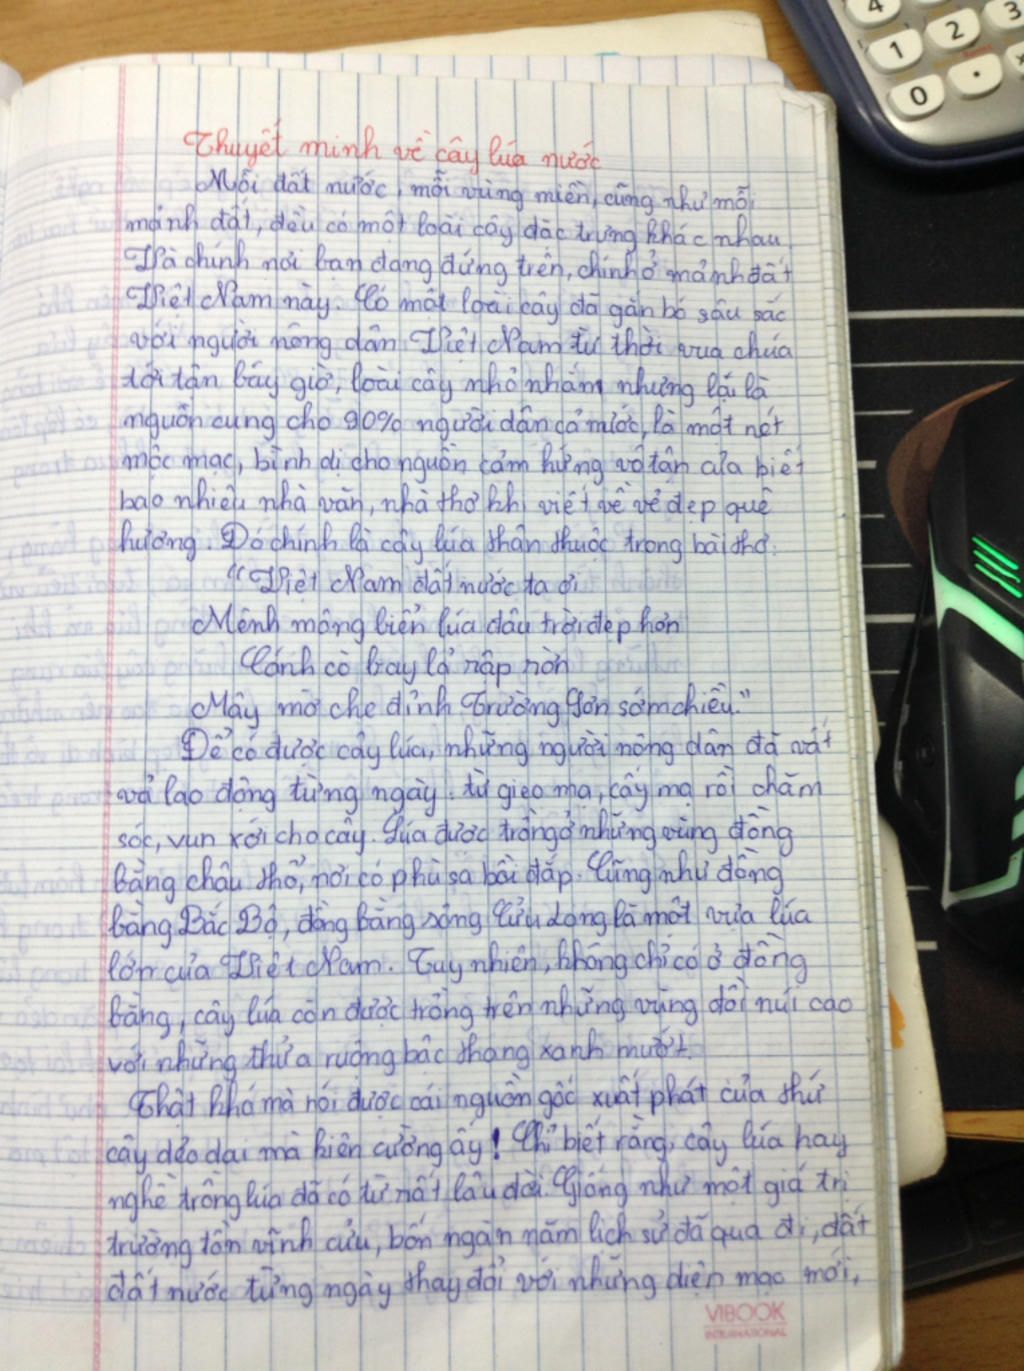 Thuyết minh về cây lúa nước
Mỗi đất nước, mỗi vùng miền, cũng như mỗi
mảnh đất, đều có một loài cây đặc trưng khác nhau.
Và chính nơi bạn đang đứng trên, chính ở mảnh đất
Việt Nam này. Có một loài cây đã gắn bó sâu sắc
với người nông dân Việt Nam từ thời vua chúa
tới tận bây giờ, loài cây nhỏ nhắn nhưng lại là
nguồn cung cho 90% người dân cả nước, là một nét
mộc mạc, bình dị cho nguồn cảm hứng vô tận của biết
bao nhiêu nhà văn, nhà thơ khi viết về vẻ đẹp quê
hương. Đó chính là cây lúa thân thuộc trong bài thơ:
"Việt Nam đất nước ta ơi
Mênh mông biển lúa đâu trời đẹp hơn
Cánh cò bay lả rập rờn
Mây mờ che đỉnh Trường Sơn sớm chiều."
Để có được cây lúa, những người nông dân đã vất
vả lao động từng ngày: từ gieo mạ, cấy mạ rồi chăm
sóc, vun xới cho cây. Lúa được trồng ở những vùng đồng
bằng châu thổ, nơi có phù sa bồi đắp. Cũng như đồng
bằng Bắc Bộ, đồng bằng sông Cửu Long là một vựa lúa
lớn của Việt Nam. Tuy nhiên, không chỉ có ở đồng
bằng, cây lúa còn được trồng trên những vùng đồi núi cao
với những thửa ruộng bậc thang xanh mướt.
Thật khó mà nói được cái nguồn gốc xuất phát của thứ
cây dẻo dai mà kiên cường ấy! Chỉ biết rằng, cây lúa hay
nghề trồng lúa đã có từ rất lâu đời. Giống như một giá trị
trường tồn vĩnh cửu, bốn ngàn năm lịch sử đã qua đi, đất
đất nước từng ngày thay đổi với những diện mạo mới,
VIBOOK
INTERNATIONAL
4
1
2
3
0
.